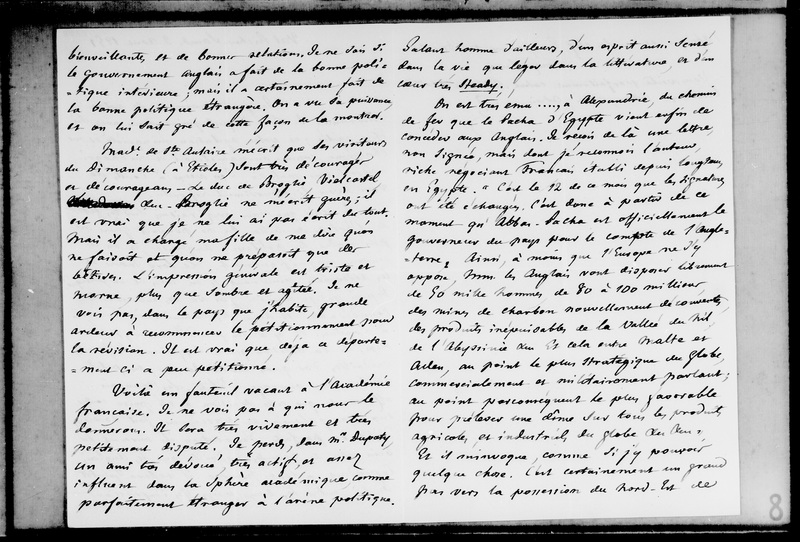 bienveillantes et de bonnes relations. Je ne sais si
le gouvernement anglais a fait de la bonne poli-
-tique intérieure, mais il a certainement fait de
la bonne politique étrangère. On a vu sa puissance
et on lui sait gré de cette façon de la montrer.
Mad. de Ste Aulaire m'écrit que ses visiteurs
du Dimanche (à Etioles) sont très découragés
et décourageans - Le duc de Broglie Viel-castel
duc. Broglie ne m'écrit guère ; il
est vrai que je ne lui ai pas écrit du tout.
Mais il a chargé ma fille de me dire qu'on
ne faisait et qu'on ne préparait que des
bêtises. L'impression générale est triste et
morne, plus que sombre et agitée. Je ne
vois pas, dans le pays que j'habite, grande
ardeur à recommencer le pétitionnement pour
la révision. Il est vrai que déjà ce départe-
-ment ci a peu pétitionné.
Voilà un fauteuil vacant à l'Académie
française. Je ne vois pas à qui nous le
donnerons. Il sera très vivement et très
petitement disputé. Je perds, dans Mr. Dupaty,
un ami très dévoué, très actif, et assez
influent dans la sphère académique comme
parfaitement étranger à l'arène politique.
Galant homme d'ailleurs, d'un esprit aussi sensé
dans la vie que léger dans la littérature, et d'un
cœur très steady.
On est très ému ...., à Alexandrie, du chemin
de fer que le Pacha d'Egypte vient enfin de
concéder aux Anglais. Je reçois de là une lettre
non signée, mais dont je reconnois l'auteur,
riche négociant Français établi depuis longtems
en Egypte. "C'est le 12 de ce mois que les signatures
ont été échangées. C'est donc à partir de ce
moment qu'Abbas-Pacha est officiellement le
gouverneur du pays pour le compte de l'Angle-
-terre. Ainsi, à moins que l'Europe ne s'y
oppose, MM. les Anglais vont disposer librement
de 50 mille hommes, de 80 à 100 millions,
des mines de charbon nouvellement découvertes,
des produits inépuisables de la Vallée du Nil
de l'Abyssinie &a Et cela entre Malte et
Aden, au point le plus stratégique du globe,
commercialement et militairement parlant ;
au point par conséquent le plus favorable
pour prélever une dîme sur tous les produits
agricoles et industriels du globe &a &a"
Et il m'invoque, comme si j'y pouvois
quelque chose. C'est certainement un grand
pas vers la possession du Nord-Est de
8